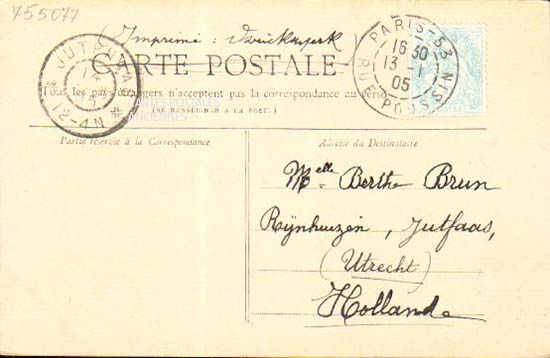 755077
(Imprimé : Drückwerk)
CARTE POSTALE
Tous les pays étrangers n'acceptent pas la correspondance au verso
(SE RENSEIGNER A LA POSTE)
CARTES POSTALES
ANCIENNES
JUTPHAAS
12-4N
PARIS-53
16 30
13 - 1
05
Partie réservée à la Correspondance
Adresse du Destinataire
Melle Berthe Brun
Rijnhuizen, Jutfaas,
(Utrecht)
Hollande